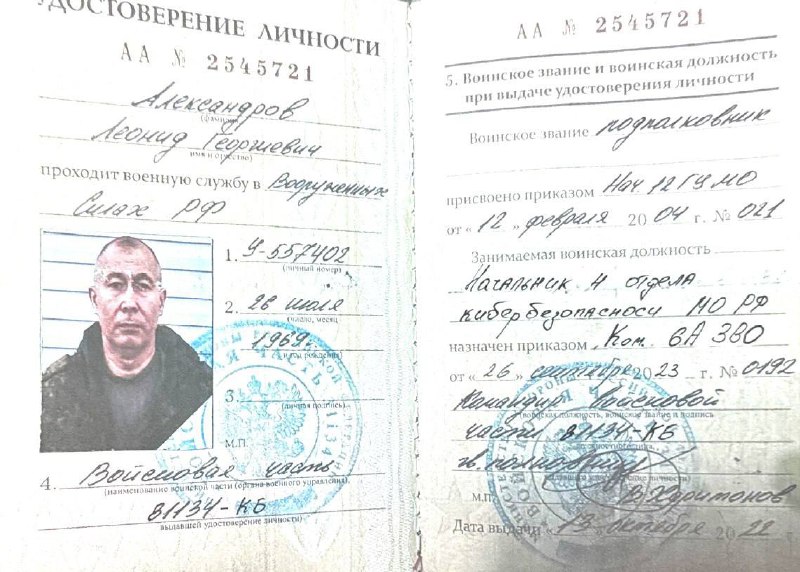 УДОСТОВЕРЕНИЕ ЛИЧНОСТИ
АА № 2545721
Александров
(фамилия)
Леонид Георгиевич
(имя и отчество)
проходит военную службу в Вооруженных
Силах РФ
1. У-557402
(личный номер)
2. 26 июля
(число, месяц
1969г.
и год рождения)
3.
(личная подпись)
М.П.
4. Войсковая часть
(наименование воинской части (органа военного управления),
81134-КБ
выдавшей удостоверение личности)
АА № 2545721
5. Воинское звание и воинская должность
при выдаче удостоверения личности
Воинское звание подполковник
присвоено приказом Нач. 12 ГУ МО
от « 12 » февраля 20 04 г. № 021
Занимаемая воинская должность
Начальник 4 отдела
кибербезопасноси МО РФ
назначен приказом Ком. 6А ЗВО
от « 26 » сентября 20 23 г. № 0192
Командир войсковой
(воинская должность, воинское звание и подпись
части 81134-КБ
должностного лица,
гв. полковник
личности)
М.П. В. Харитонов
Дата выдачи « 13 » октября 20 22 г.